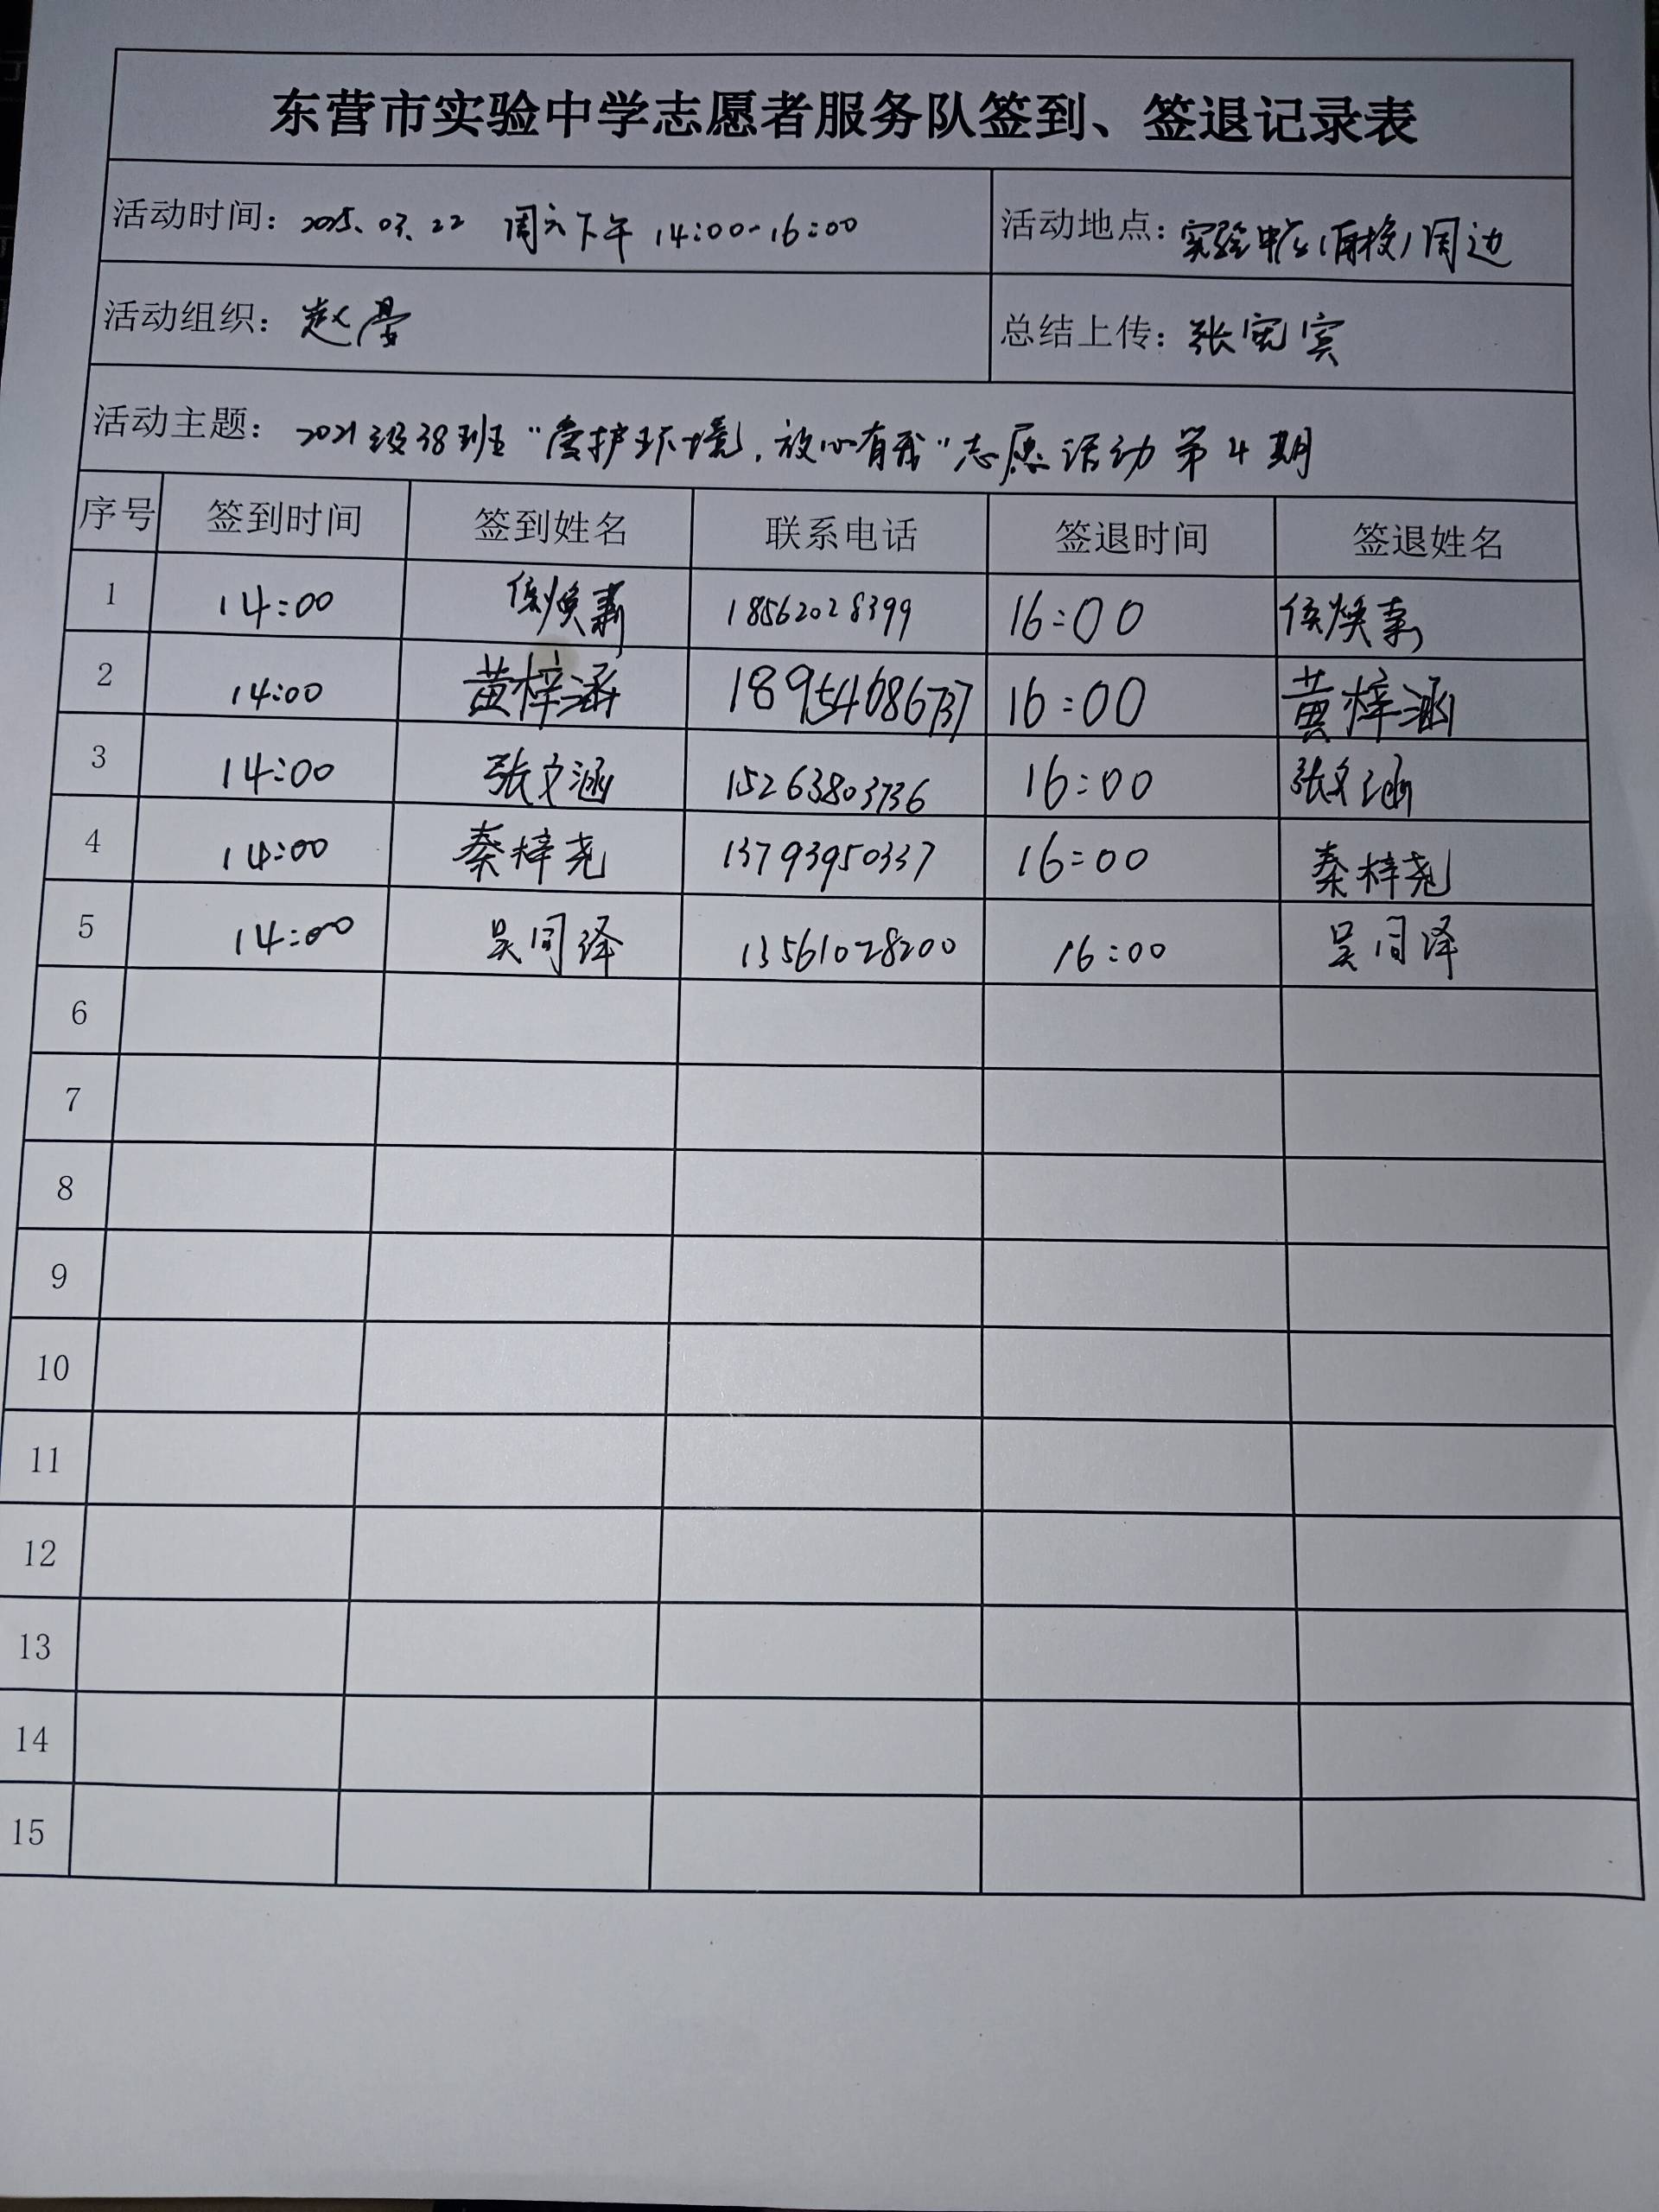 东营市实验中学志愿者服务队签到、签退记录表
活动时间：2025.03.22 周六下午 14:00-16:00 活动地点：实验中学(西校)周边
活动组织：赵晏 总结上传：张宪宾
活动主题：2021级38班“爱护环境，放心有我”志愿活动第4期
序号 签到时间 签到姓名 联系电话 签退时间 签退姓名
1 14:00 18562028399 16:00
2 14:00 黄梓涵 18954686737 16:00 黄梓涵
3 14:00 张文涵 15263803736 16:00 张文涵
4 14:00 秦梓尧 13793950337 16:00 秦梓尧
5 14:00 吴同泽 13561028200 16:00 吴同泽
6
7
8
9
10
11
12
13
14
15